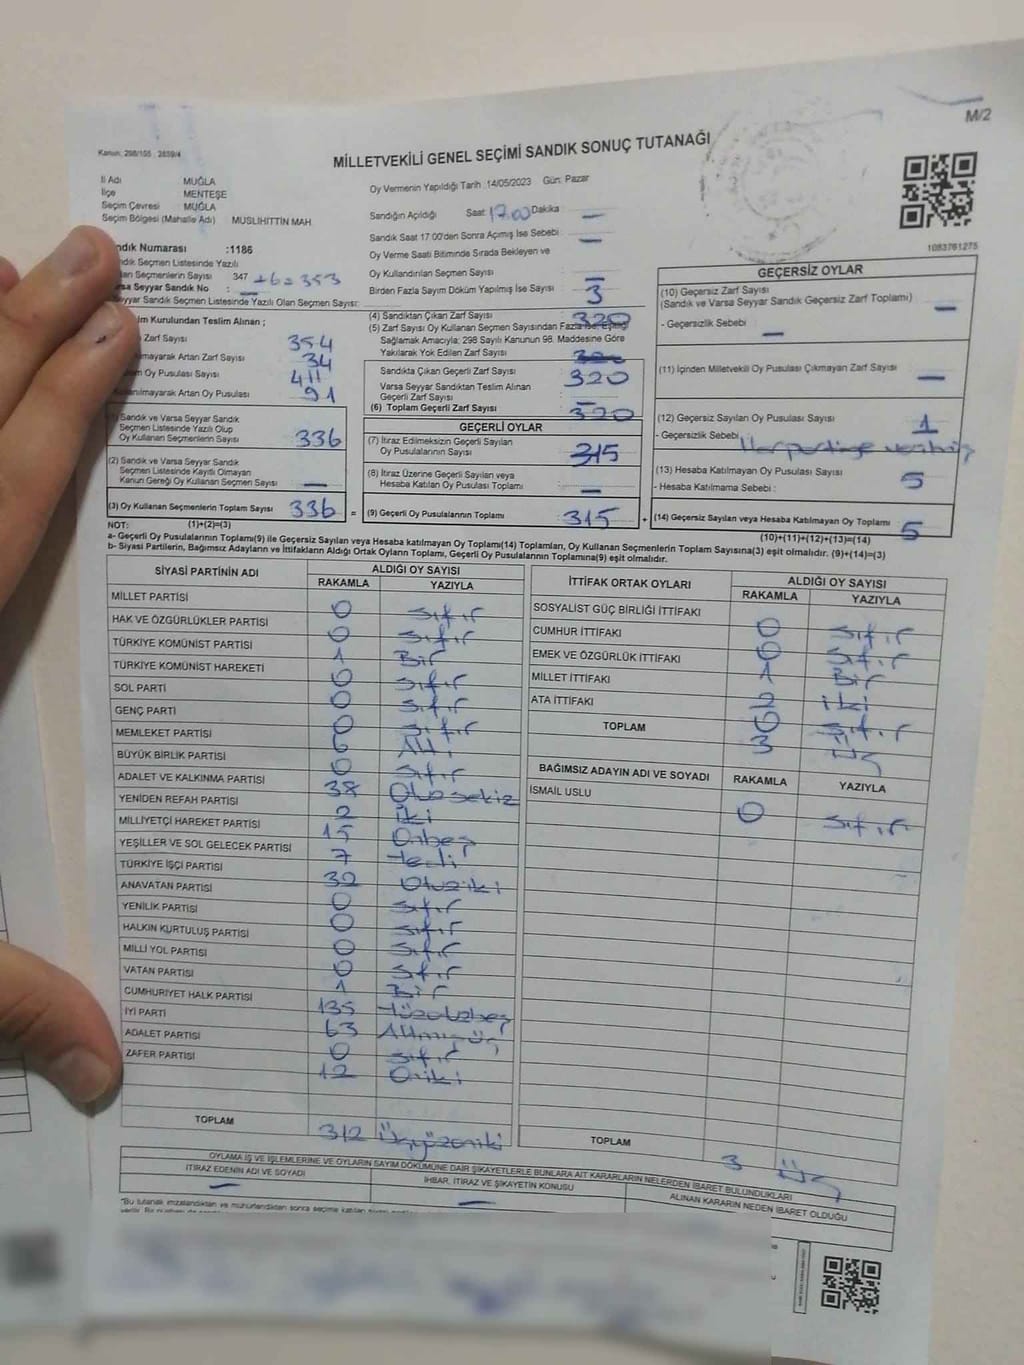 M/2
Kanun: 298/105 , 2839/4
MİLLETVEKİLİ GENEL SEÇİMİ SANDIK SONUÇ TUTANAĞI
İl Adı MUĞLA
İlçe MENTEŞE
Seçim Çevresi MUĞLA
Seçim Bölgesi (Mahalle Adı) MUSLIHITTIN MAH
Sandık Numarası :1186
Sandık Seçmen Listesinde Yazılı
Olan Seçmenlerin Sayısı 347 +6=353
Varsa Seyyar Sandık No : —
Seyyar Sandık Seçmen Listesinde Yazılı Olan Seçmen Sayısı:
Oy Vermenin Yapıldığı Tarih :14/05/2023 Gün: Pazar
Sandığın Açıldığı Saat 17.00 Dakika —
Sandık Saat 17:00'den Sonra Açımış İse Sebebi —
Oy Verme Saati Bitiminde Sırada Bekleyen ve
Oy Kullandırılan Seçmen Sayısı —
Birden Fazla Sayım Döküm Yapılmış İse Sayısı 3
1083761275
Kurulundan Teslim Alınan ;
Zarf Sayısı 354
Artan Zarf Sayısı 34
Oy Pusulası Sayısı 411
Artan Oy Pusulası 91
(1) Sandık ve Varsa Seyyar Sandık
Seçmen Listesinde Yazılı Olup
Oy Kullanan Seçmenlerin Sayısı 336
(2) Sandık ve Varsa Seyyar Sandık
Seçmen Listesinde Kayıtlı Olmayan
Kanun Gereği Oy Kullanan Seçmen Sayısı —
(3) Oy Kullanan Seçmenlerin Toplam Sayısı 336 =
(4) Sandıktan Çıkan Zarf Sayısı 320
(5) Zarf Sayısı Oy Kullanan Seçmen Sayısından Fazla ise, Eşitliği
Sağlamak Amacıyla; 298 Sayılı Kanunun 98. Maddesine Göre
Yakılarak Yok Edilen Zarf Sayısı
Sandıkta Çıkan Geçerli Zarf Sayısı 320
Varsa Seyyar Sandıktan Teslim Alınan
Geçerli Zarf Sayısı —
(6) Toplam Geçerli Zarf Sayısı 320
GEÇERLİ OYLAR
(7) İtiraz Edilmeksizin Geçerli Sayılan
Oy Pusulalarının Sayısı 315
(8) İtiraz Üzerine Geçerli Sayılan veya
Hesaba Katılan Oy Pusulası Toplamı —
(9) Geçerli Oy Pusulalarının Toplamı 315 +
GEÇERSİZ OYLAR
(10) Geçersiz Zarf Sayısı
(Sandık ve Varsa Seyyar Sandık Geçersiz Zarf Toplamı) —
- Geçersizlik Sebebi : —
(11) İçinden Milletvekili Oy Pusulası Çıkmayan Zarf Sayısı —
(12) Geçersiz Sayılan Oy Pusulası Sayısı 1
- Geçersizlik Sebebi
(13) Hesaba Katılmayan Oy Pusulası Sayısı 5
- Hesaba Katılmama Sebebi :
(14) Geçersiz Sayılan veya Hesaba Katılmayan Oy Toplamı 5
NOT: (1)+(2)=(3) (10)+(11)+(12)+(13)=(14)
a- Geçerli Oy Pusulalarının Toplamı(9) ile Geçersiz Sayılan veya Hesaba katılmayan Oy Toplamı(14) Toplamları, Oy Kullanan Seçmenlerin Toplam Sayısına(3) eşit olmalıdır. (9)+(14)=(3)
b- Siyasi Partilerin, Bağımsız Adayların ve İttifakların Aldığı Ortak Oyların Toplamı, Geçerli Oy Pusulalarının Toplamına(9) eşit olmalıdır.
SİYASİ PARTİNİN ADI ALDIĞI OY SAYISI
RAKAMLA YAZIYLA
MİLLET PARTİSİ 0 sıfır
HAK VE ÖZGÜRLÜKLER PARTİSİ 0 sıfır
TÜRKİYE KOMÜNİST PARTİSİ 1 Bir
TÜRKİYE KOMÜNİST HAREKETİ 0 sıfır
SOL PARTİ 0 sıfır
GENÇ PARTİ 0 sıfır
MEMLEKET PARTİSİ 6 Altı
BÜYÜK BİRLİK PARTİSİ 0 sıfır
ADALET VE KALKINMA PARTİSİ 38 Otuzsekiz
YENİDEN REFAH PARTİSİ 2 iki
MİLLİYETÇİ HAREKET PARTİSİ 15 Onbeş
YEŞİLLER VE SOL GELECEK PARTİSİ 7 Yedi
TÜRKİYE İŞÇİ PARTİSİ 32 Otuziki
ANAVATAN PARTİSİ 0 sıfır
YENİLİK PARTİSİ 0 sıfır
HALKIN KURTULUŞ PARTİSİ 0 sıfır
MİLLİ YOL PARTİSİ 0 sıfır
VATAN PARTİSİ 1 Bir
CUMHURİYET HALK PARTİSİ 135 Yüzotuzbeş
İYİ PARTİ 63 Altmışüç
ADALET PARTİSİ 0 sıfır
ZAFER PARTİSİ 12 Oniki
TOPLAM 312 Üçyüzoniki
İTTİFAK ORTAK OYLARI ALDIĞI OY SAYISI
RAKAMLA YAZIYLA
SOSYALİST GÜÇ BİRLİĞİ İTTİFAKI 0 sıfır
CUMHUR İTTİFAKI 0 sıfır
EMEK VE ÖZGÜRLÜK İTTİFAKI 1 Bir
MİLLET İTTİFAKI 2 iki
ATA İTTİFAKI 0 sıfır
TOPLAM 3 Üç
BAĞIMSIZ ADAYIN ADI VE SOYADI RAKAMLA YAZIYLA
İSMAİL USLU 0 sıfır
TOPLAM 3 Üç
OYLAMA İŞ VE İŞLEMLERİNE VE OYLARIN SAYIM DÖKÜMÜNE DAİR ŞİKAYETLERLE BUNLARA AİT KARARLARIN NELERDEN İBARET BULUNDUKLARI
İTİRAZ EDENİN ADI VE SOYADI İHBAR, İTİRAZ VE ŞİKAYETİN KONUSU ALINAN KARARIN NEDEN İBARET OLDUĞU
— —
*Bu tutanak imzalandıktan ve mühürlendikten sonra seçime katılan